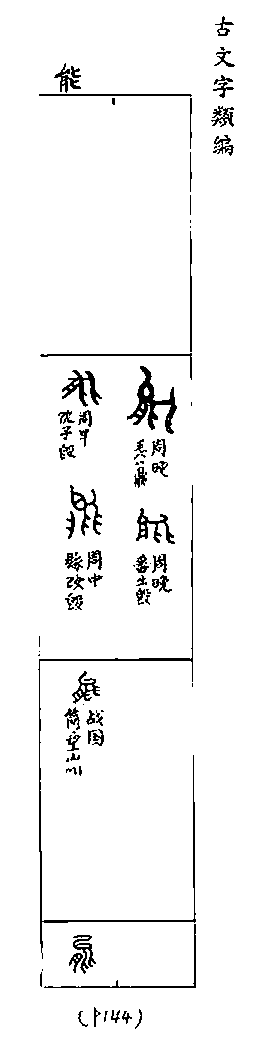 古文字類編
能
周晚
毛公鼎
周早
沈子𣪘
周晚
番生𣪘
周中
縣改𣪘
战国
簡望山M1
(P144)